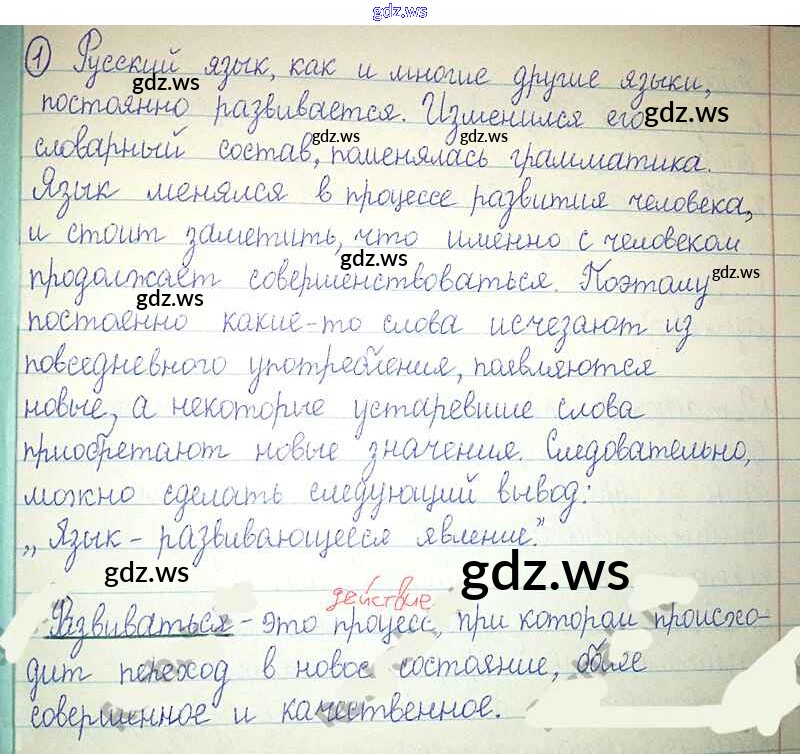 gdz.ws
① Русский язык, как и многие другие языки,
постоянно развивается. Изменился его
gdz.ws
gdz.ws
gdz.ws
словарный состав, поменялась грамматика.
Язык менялся в процессе развития человека,
и стоит заметить, что именно с человеком
gdz.ws
продолжает совершенствоваться. Поэтому
gdz.ws
gdz.ws
постоянно какие-то слова исчезают из
повседневного употребления, появляются
новые, а некоторые устаревшие слова
приобретают новые значения. Следовательно,
можно сделать следующий вывод:
„Язык - развивающееся явление."
gdz.ws
gdz.ws
действие
Развиваться - это процесс, при котором происхо-
дит переход в новое состояние, более
совершенное и качественное.